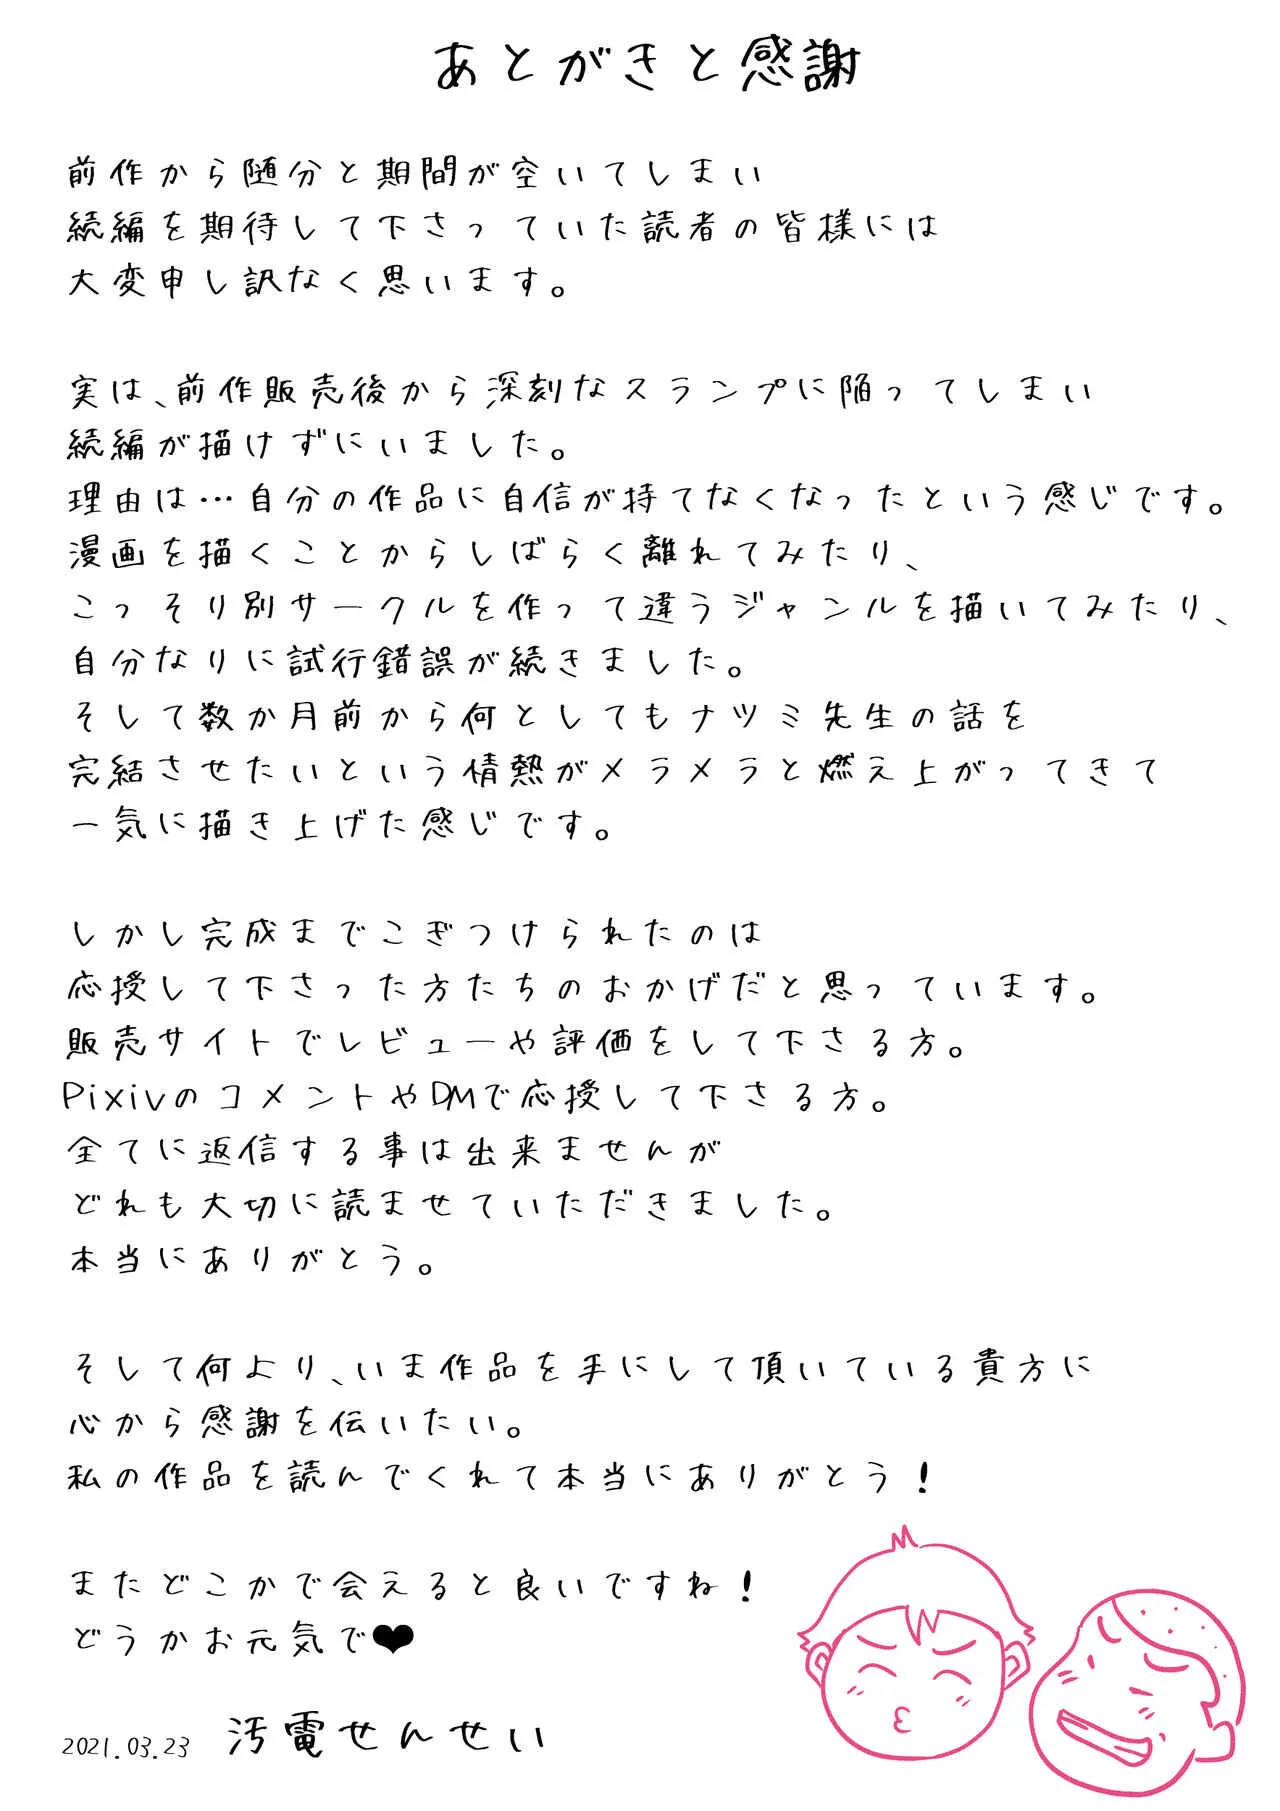 あとがきと感謝
前作から随分と期間が空いてしまい
続編を期待して下さっていた読者の皆様には
大変申し訳なく思います。
実は、前作販売後から深刻なスランプに陥ってしまい
続編が描けずにいました。
理由は…自分の作品に自信が持てなくなったという感じです。
漫画を描くことからしばらく離れてみたり、
こっそり別サークルを作って違うジャンルを描いてみたり、
自分なりに試行錯誤が続きました。
そして数か月前から何としてもナツミ先生の話を
完結させたいという情熱がメラメラと燃え上がってきて
一気に描き上げた感じです。
しかし完成までこぎつけられたのは
応援して下さった方たちのおかげだと思っています。
販売サイトでレビューや評価をして下さる方。
PixivのコメントやDMで応援して下さる方。
全てに返信する事は出来ませんが
どれも大切に読ませていただきました。
本当にありがとう。
そして何より、いま作品を手にして頂いている貴方に
心から感謝を伝いたい。
私の作品を読んでくれて本当にありがとう！
またどこかで会えると良いですね！
どうかお元気で❤
2021.03.23 汚電せんせい